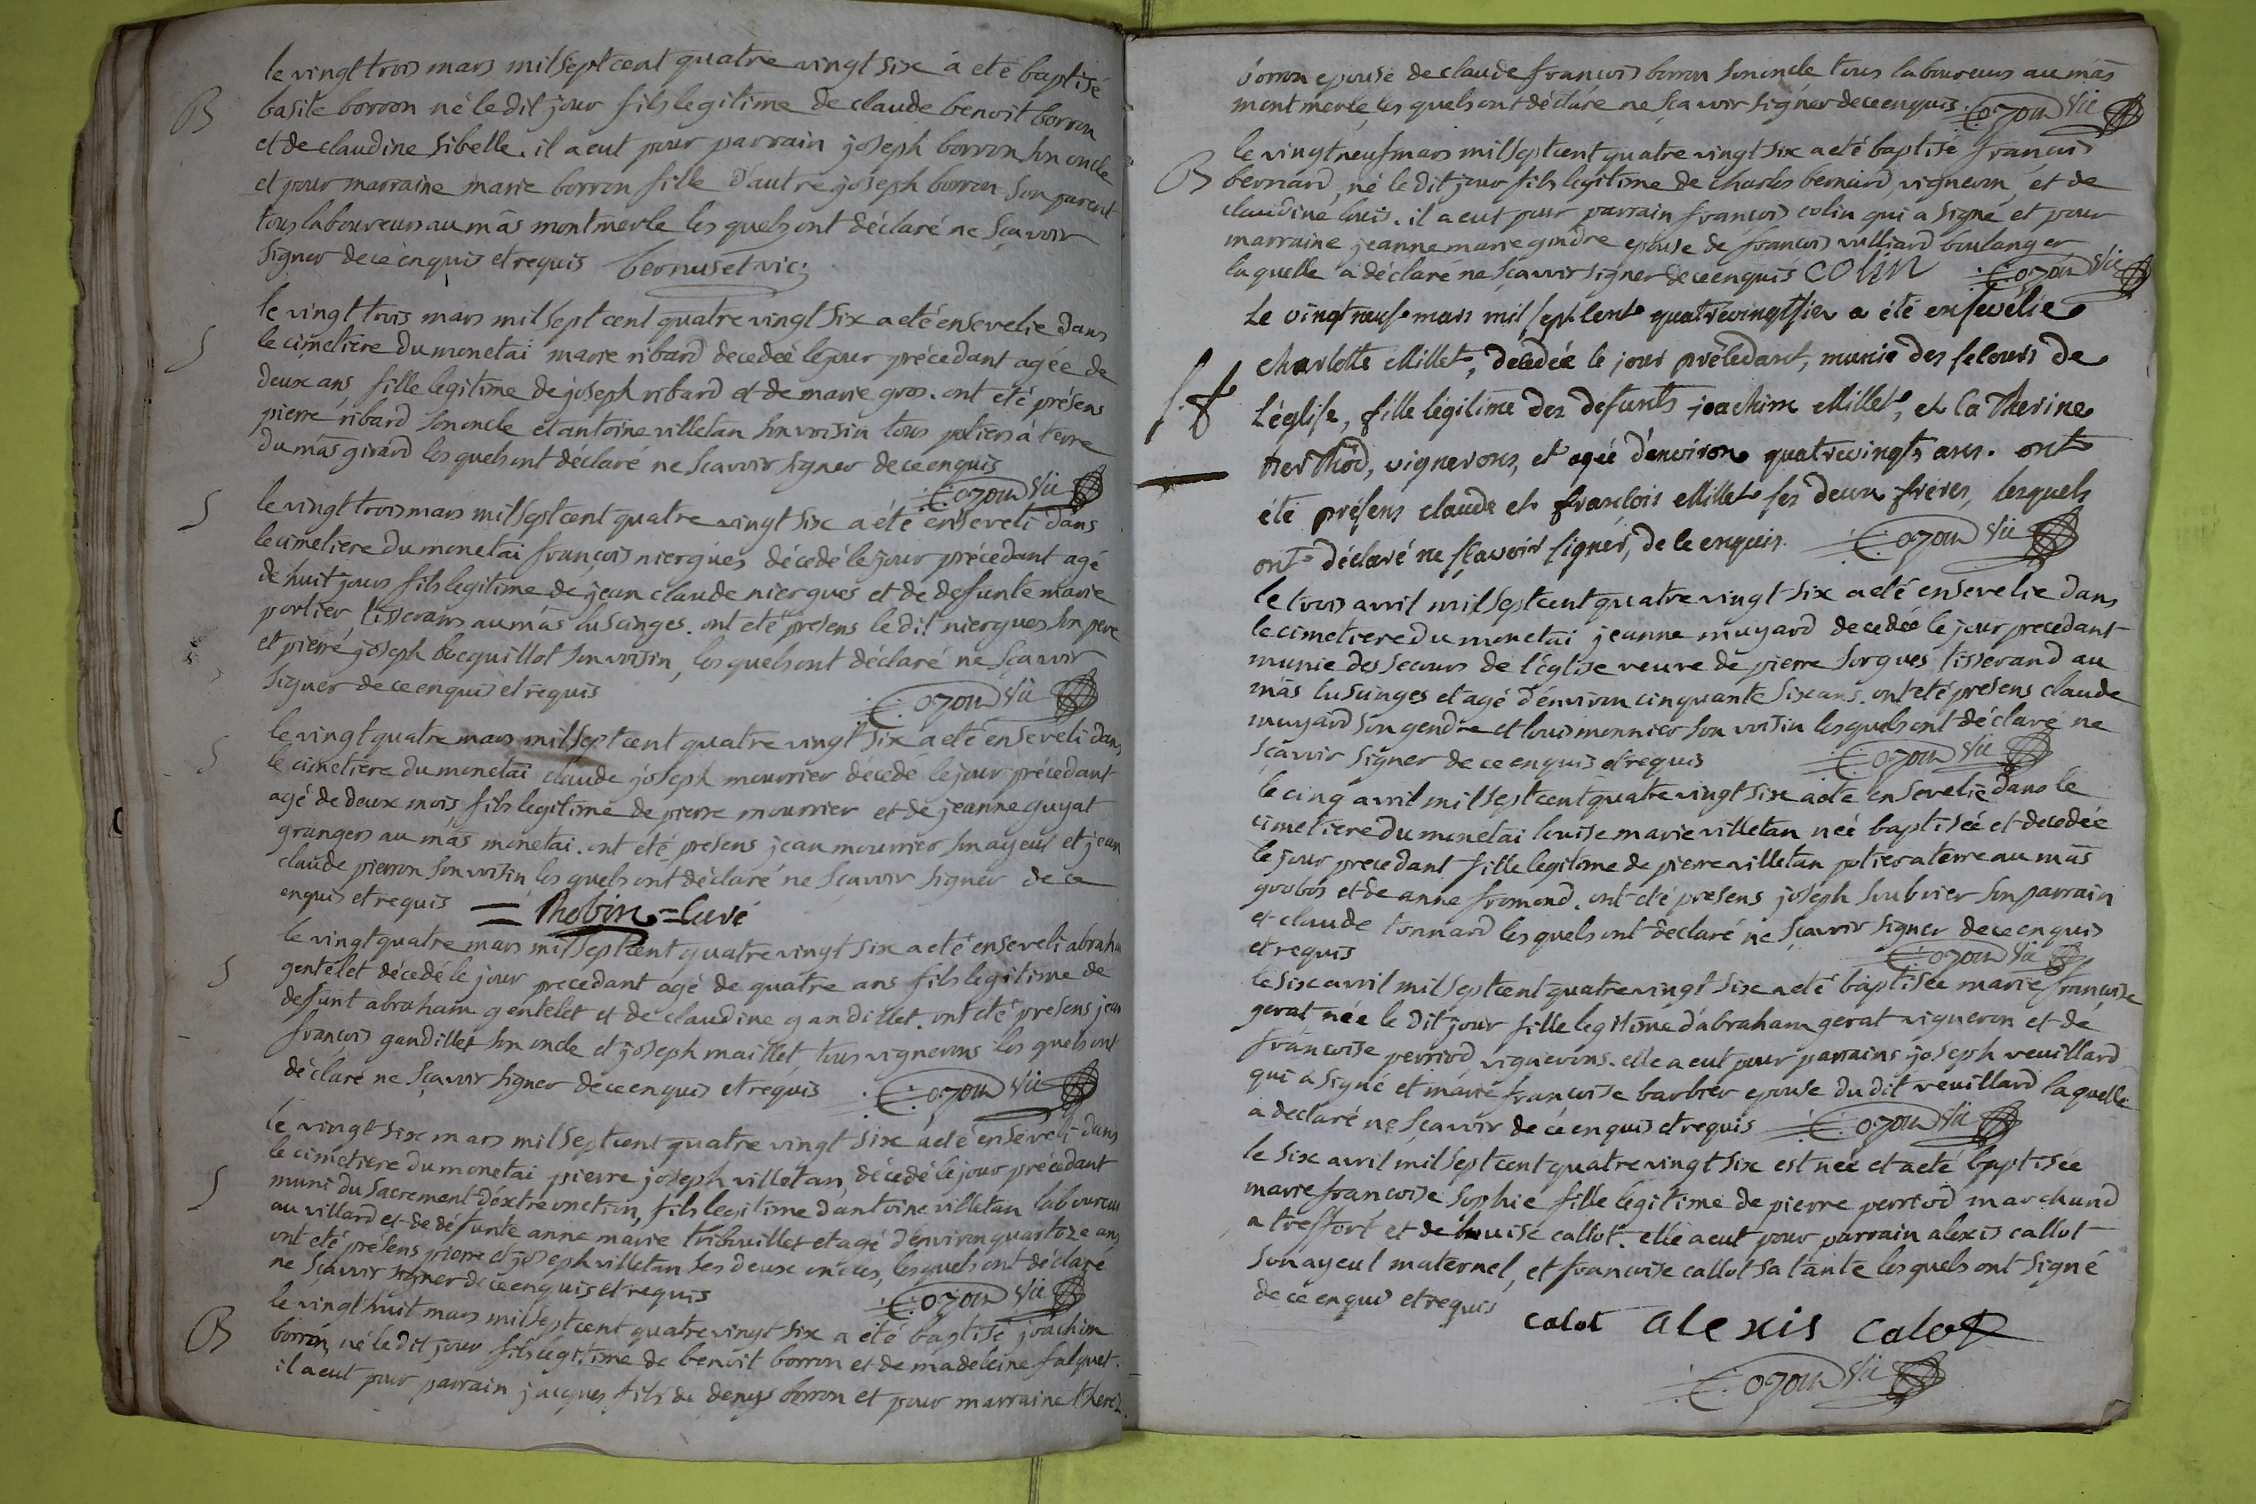 le vingt trois mars mil sept cent quatre vingt six à eté baptisé
B
basile borron né le dit jour fils legitime de claude benoit borron
et de claudine sibelle. il a eut pour parrain joseph borron son oncle
et pour marraine marie borron fille d'autre joseph borron son parent
tous laboureurs au mâs montmerle les quels ont déclaré ne sçavoir
signer de ce enquis et requis bernuset vic;
le vingt trois mars mil sept cent quatre vingt six a eté ensevelie dans
S
le cimetiere du monetai marie ribard decedeé le jour précedant agée de
deux ans fille legitime de joseph ribard et de marie gros. ont été présens
pierre ribard son oncle et antoine villetan son voisin tous potiers à terre
du mâs girard les quels ont déclaré ne sçavoir signer de ce enquis
Cozon vic
S
le vingt trois mars mil sept cent quatre vingt six a été enseveli dans
le cimetiere du monetai françois niergues décedé le jour précedant agé
de huit jours fils legitime de jean claude niergues et de defunte marie
portier, tisserans au mâs lusanges. ont eté presens le dit niergues son pere
et pierre joseph bocquillot son voisin, les quels ont déclaré ne sçavoir
signer de ce enquis et requis
Cozon vic
le vingt quatre mars mil sept cent quatre vingt six a eté enseveli dans
S
le cimetiere du monetai claude joseph mourrier décedé le jour précedant
agé de deux mois, fils legitime de pierre mourrier et de jeanne guyat
grangers au mâs monetai. ont eté presens jean mourrier son ayeul et jean
claude pierron son voisin les quels ont déclaré ne sçavoir signer de ce
enquis et requis = Thobin = Curé
le vingt quatre mars mil sept cent quatre vingt six a eté enseveli abraham
S
gentelet décedé le jour precedant agé de quatre ans fils legitime de
defunt abraham gentelet et de claudine gandillet. ont eté presens jean
françois gandillet son oncle et joseph maillet tous vignerons les quels ont
déclaré ne sçavoir signer de ce enquis et requis Cozon vic
le vingt six mars mil sept cent quatre vingt six a eté enseveli dans
le cimetiere du monetai pierre joseph villetan, décedé le jour précedant
S
muni du sacrement d'extreonction, fils legitime d'antoine villetan laboureur
au villard et de défunte anne marie tribouillet et agé d'environ quartoze ans
ont eté présens pierre et joseph villetan ses deux oncles, les quels ont déclaré
ne sçavoir signer de ce enquis et requis Cozon vic
le vingt huit mars mil sept cent quatre vingt six a été baptisé joachim
B
borron, né le dit jour fils legitime de benoit borron et de madeleine falquet.
il a eut pour parrain jacques fils de denys borron et pour marraine
borron epouse de claude françois borron son oncle tous laboureurs au mâs
montmerle les quels ont déclaré ne sçavoir signer de ce enquis. Cozon vic
le vingt neuf mars mil sept cent quatre vingt six a eté baptisé françois
B
bernard, né le dit jour fils legitime de charles bernard, vigneron, et de
claudine louis. il a eut pour parrain françois colin qui a signé et pour
marraine jeanne marie gindre epouse de françois vulliard boulanger
la quelle a déclaré ne sçavoir signer de ce enquis COLIN Cozon vic
Le vingt neuf mars mil sept cent quatrevingt six a été ensevelie
Charlotte Millet, décedée le jour précedant, munie des secours de
L'église, fille légitime des defunts joachim Millet, et Catherine
, vignerons, et agée d'environ quatrevingts ans. ont
été présens claude et françois Millet ses deux freres, lesquels
ont déclaré ne sçavoir signer, de ce enquis. Cozon vic
le trois avril mil sept cent quatre vingt six a eté ensevelie dans
le cimetiere du monetai jeanne muyard decedée le jour precedant
munie des secours de l'église veuve de pierre sorgues tisserand au
mâs lusanges et agé d'environ cinquante six ans. ont eté presens claude
muyard son gendre et louis monnier son voisin les quels ont déclaré ne
scavoir signer de ce enquis et requis Cozon vic
le cinq avril mil sept cent quatre vingt six a eté ensevelie dans le
cimetiere du monetai louise marie villetan neé baptiseé et decedeé
le jour precedant fille legitime de pierre villetan potier a terre au mâs
grobos et de anne fromond. ont eté presens joseph soubrier son parrain
et claude tonnard les quels ont déclaré ne sçavoir signer de ce enquis
et requis Cozon vic
le six avril mil sept cent quatre vingt six a eté baptisée marie françoise
gerat née le dit jour fille legitime d'abraham gerat vigneron et de
françoise perriod vignerons. elle a eut pour parrains joseph veuillard
qui a signé et marie françoise barbier epouse du dit veuillard la quelle
a declaré ne sçavoir de ce enquis et requis Cozon vic
le six avril mil sept cent quatre vingt six est neé et a eté baptisée
marie françoise sophie fille legitime de pierre perriod marchand
a treffort et de louise callot. elle a eut pour parrain alexis callot
son ayeul maternel, et françoise callot sa tante les quels ont signé
de ce enquis et requis calot alexis calot
Cozon vic